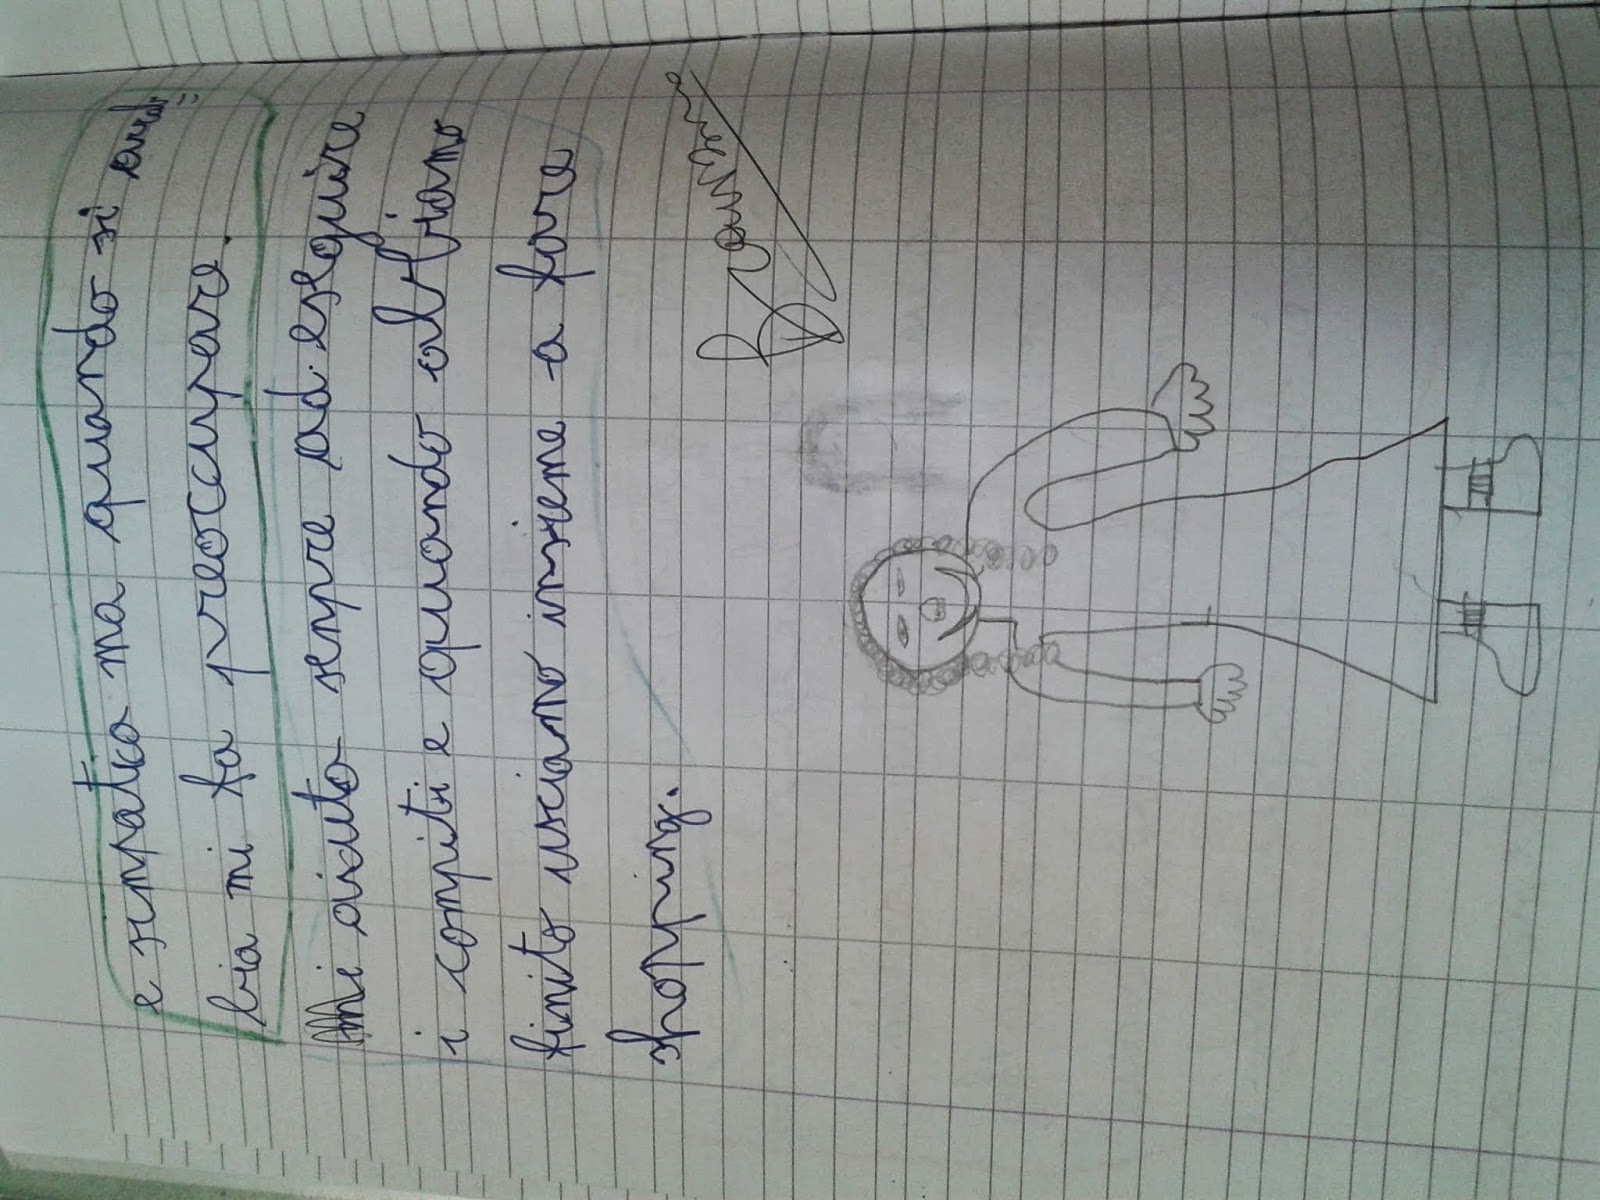 e simpatica ma quando si arrab=
bia mi fa preoccupare.
mi aiuta sempre ad eseguire
i compiti e quando abbiamo
finito usciamo insieme a fare
shopping.